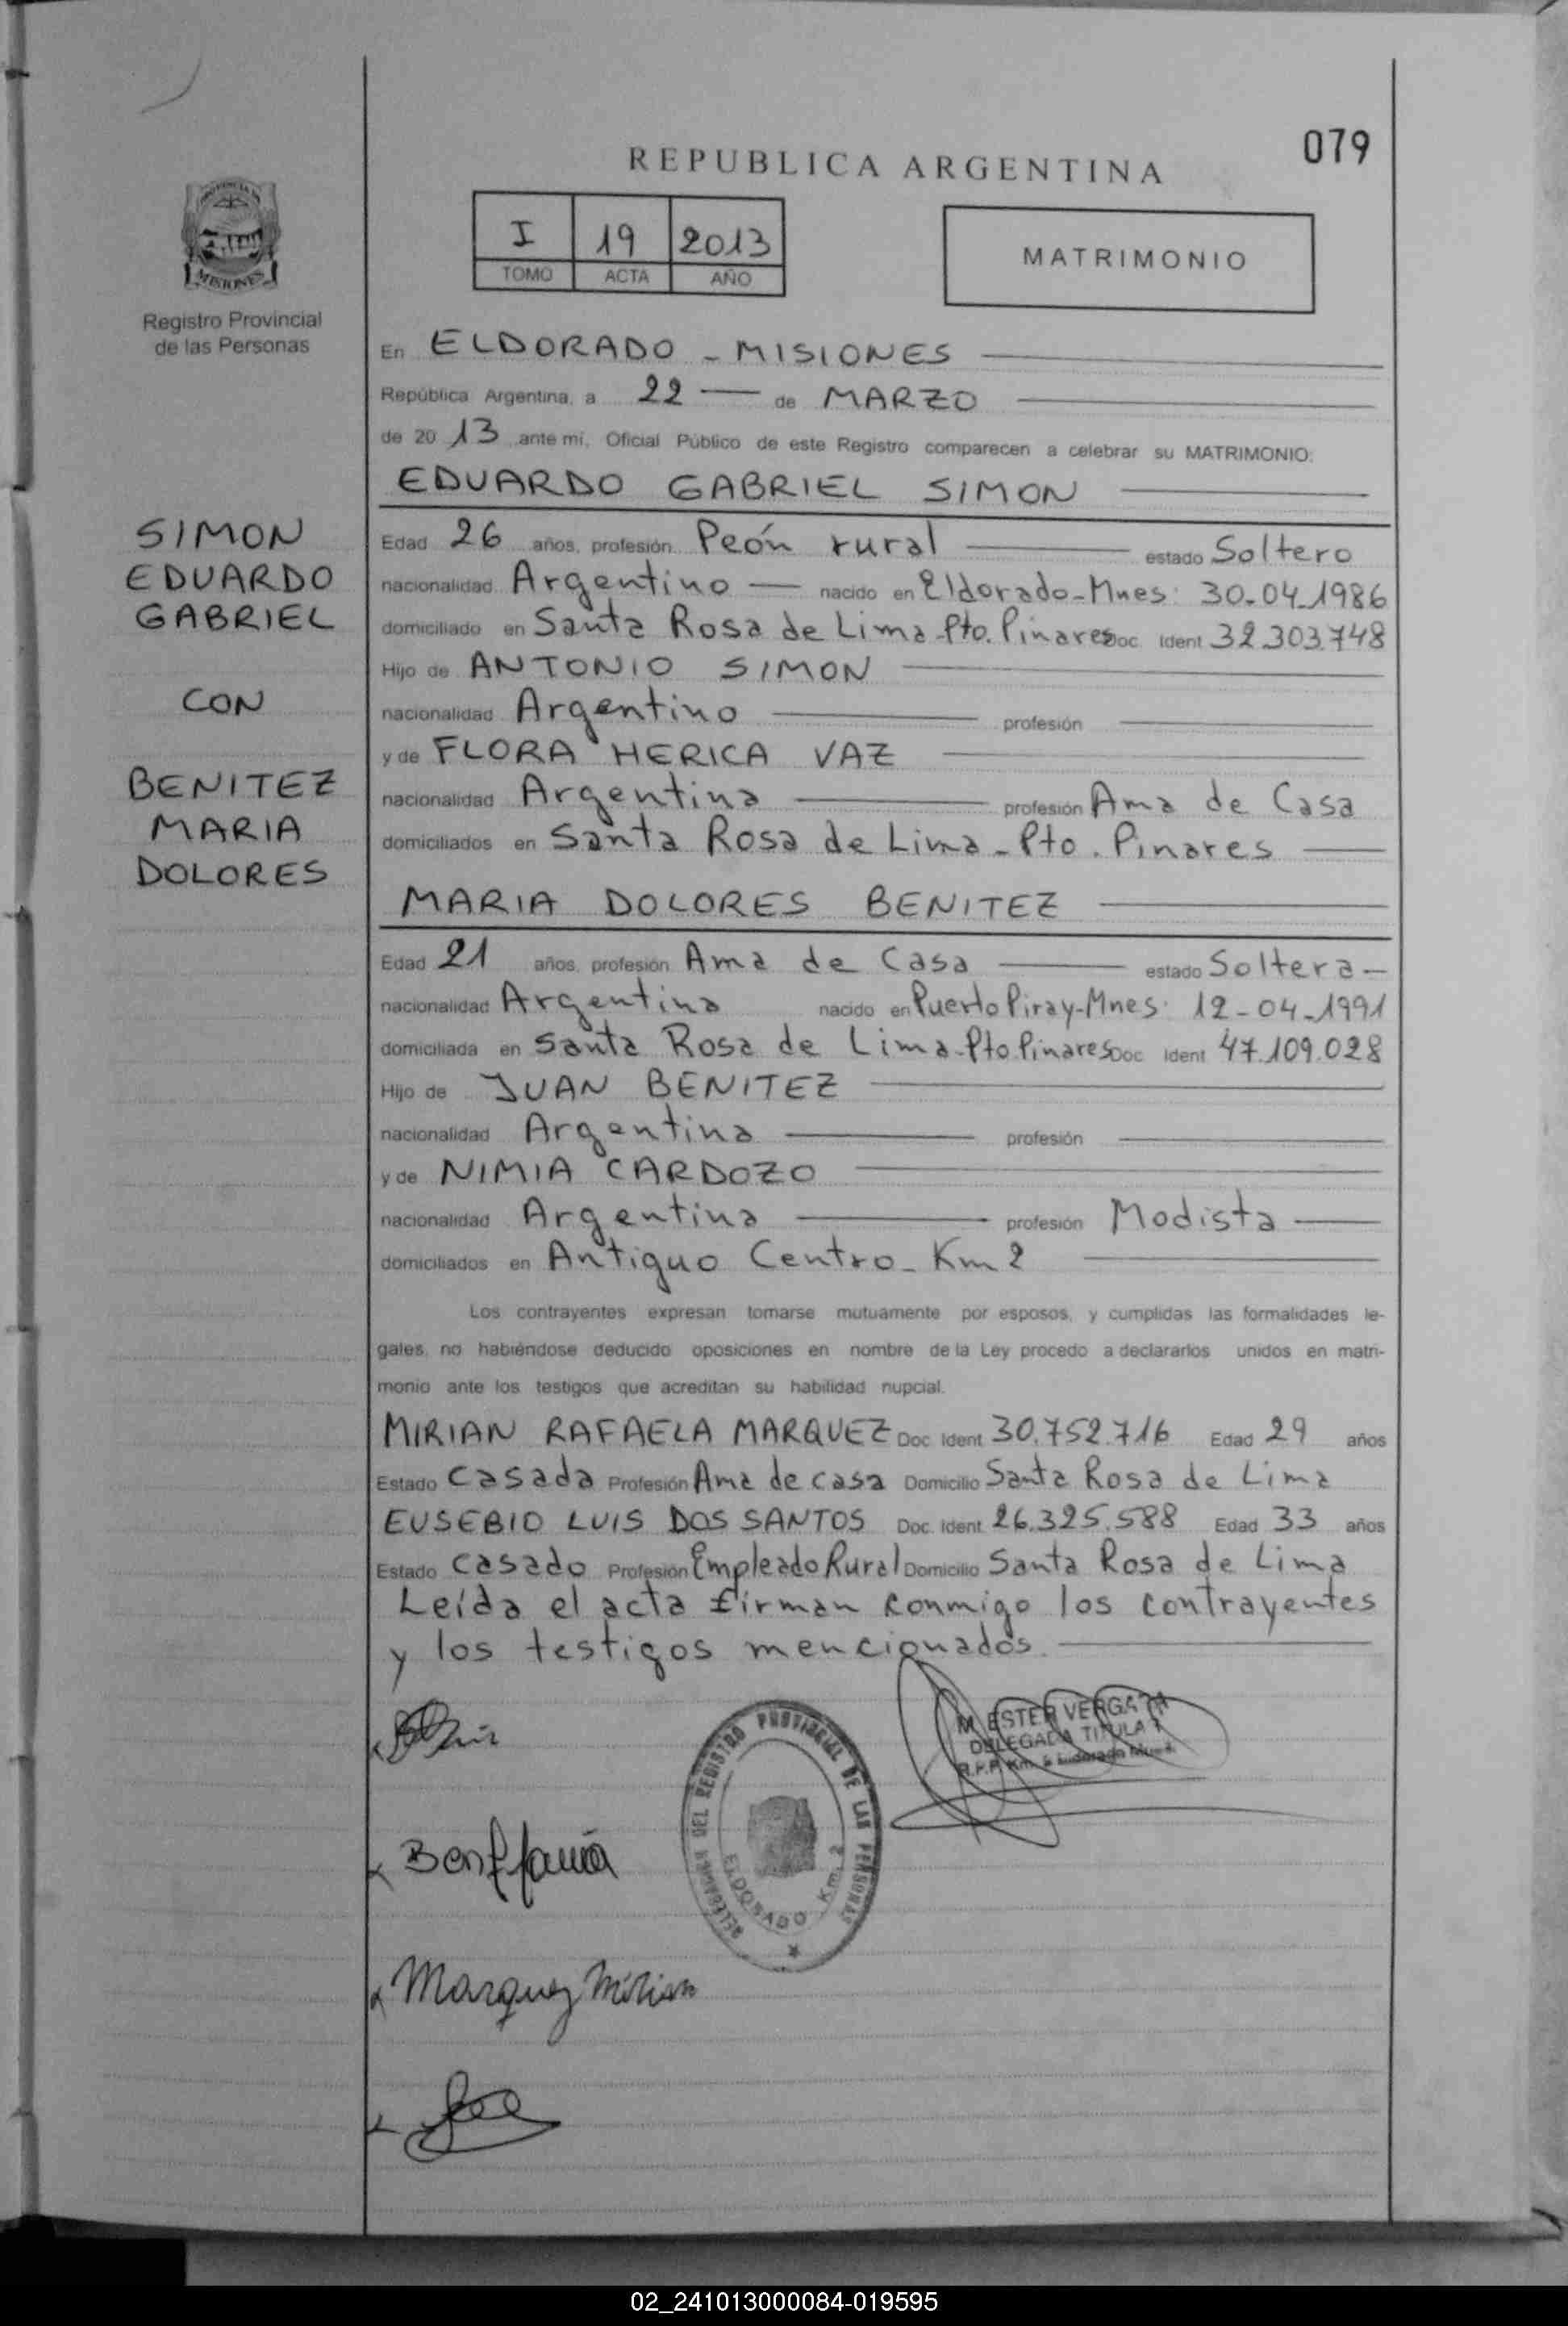 079
REPUBLICA ARGENTINA
I 19 2013
TOMO ACTA AÑO
MATRIMONIO
MISIONES
Registro Provincial
de las Personas
SIMON
EDUARDO
GABRIEL
CON
BENITEZ
MARIA
DOLORES
En ELDORADO - MISIONES
República Argentina, a 22 de MARZO
de 2013 ante mí, Oficial Público de este Registro comparecen a celebrar su MATRIMONIO:
EDUARDO GABRIEL SIMON
Edad 26 años, profesión Peón rural estado Soltero
nacionalidad Argentino nacido en Eldorado-Mnes: 30-04-1986
domiciliado en Santa Rosa de Lima-Pto. Pinares Doc. Ident 32.303.748
Hijo de ANTONIO SIMON
nacionalidad Argentino profesión
y de FLORA HERICA VAZ
nacionalidad Argentina profesión Ama de Casa
domiciliados en Santa Rosa de Lima - Pto. Pinares
MARIA DOLORES BENITEZ
Edad 21 años, profesión Ama de Casa estado Soltera
nacionalidad Argentina nacido en Puerto Piray-Mnes: 12-04-1991
domiciliada en Santa Rosa de Lima-Pto Pinares Doc Ident 47.109.028
Hijo de JUAN BENITEZ
nacionalidad Argentina profesión
y de NIMIA CARDOZO
nacionalidad Argentina profesión Modista
domiciliados en Antiguo Centro - Km 2
Los contrayentes expresan tomarse mutuamente por esposos, y cumplidas las formalidades le-
gales, no habiéndose deducido oposiciones en nombre de la Ley procedo a declararlos unidos en matri-
monio ante los testigos que acreditan su habilidad nupcial.
MIRIAN RAFAELA MARQUEZ Doc Ident 30.752.716 Edad 29 años
Estado Casada Profesión Ama de casa Domicilio Santa Rosa de Lima
EUSEBIO LUIS DOS SANTOS Doc. Ident 26.325.588 Edad 33 años
Estado Casado Profesión Empleado Rural Domicilio Santa Rosa de Lima
Leída el acta firman conmigo los contrayentes
y los testigos mencionados.
M. ESTER VERGARA
DELEGADA TITULAR
R.P.P. Km. Eldorado
DEL REGISTRO PROVINCIAL DE LAS PERSONAS
ELDORADO Km. 2
Marquez Mirian
02_241013000084-019595